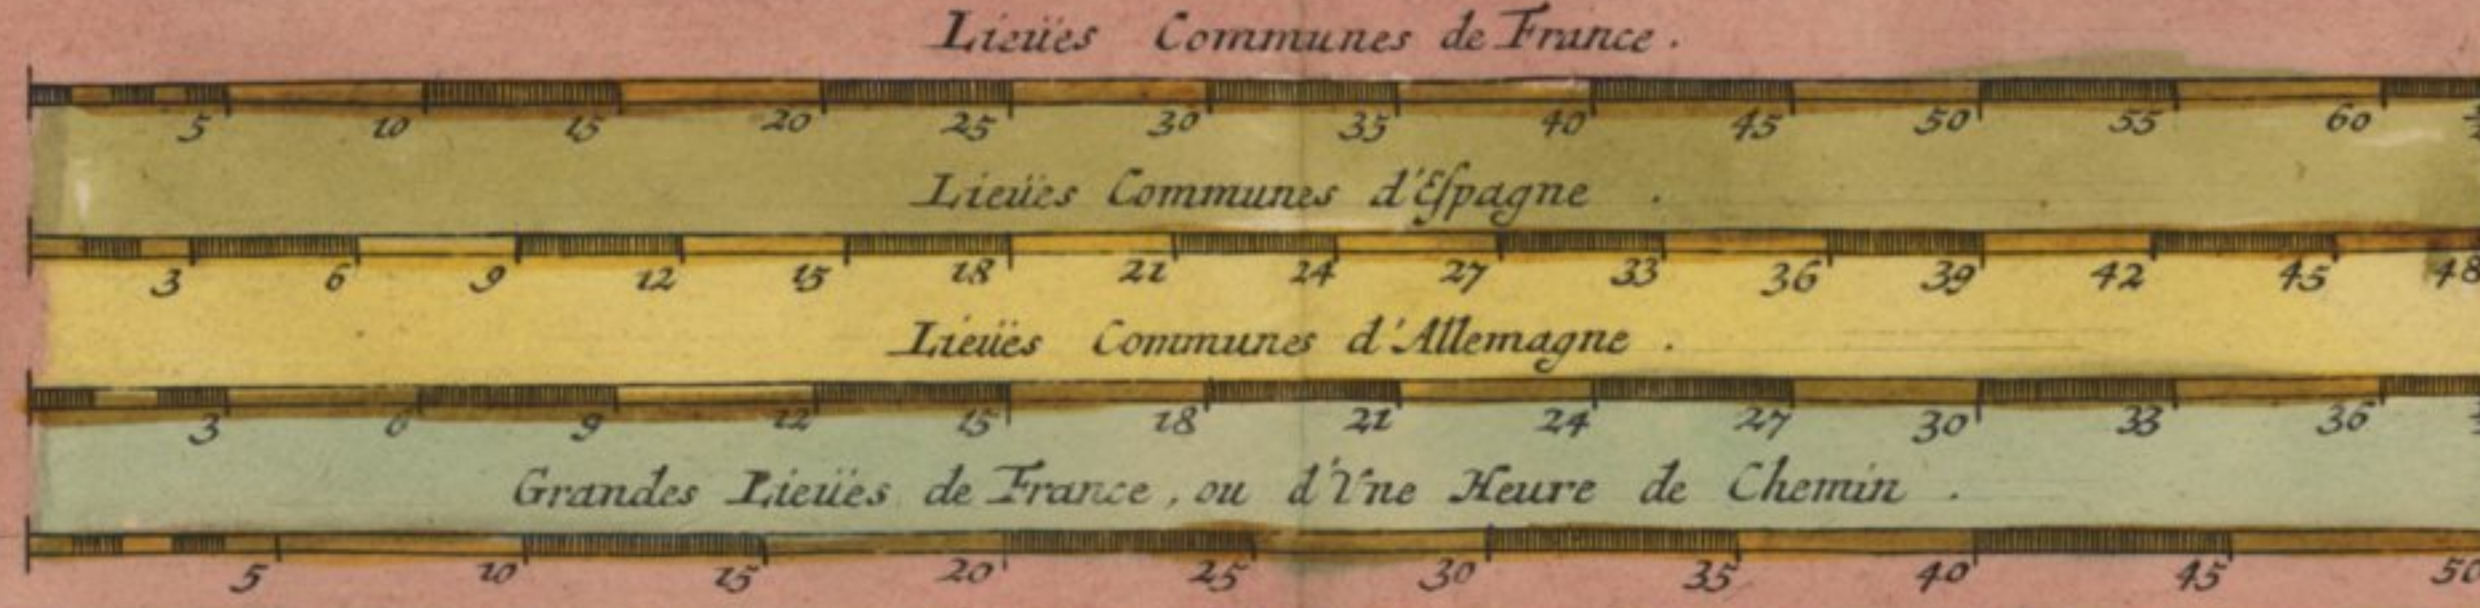 Lieües Communes de France.
5 10 15 20 25 30 35 40 45 50 55 60
Lieües Communes d'Eſpagne.
3 6 9 12 15 18 21 24 27 33 36 39 42 45 48
Lieües Communes d'Allemagne.
3 6 9 12 15 18 21 24 27 30 33 36
Grandes Lieües de France, ou d'Vne Heure de Chemin.
5 10 15 20 25 30 35 40 45 50